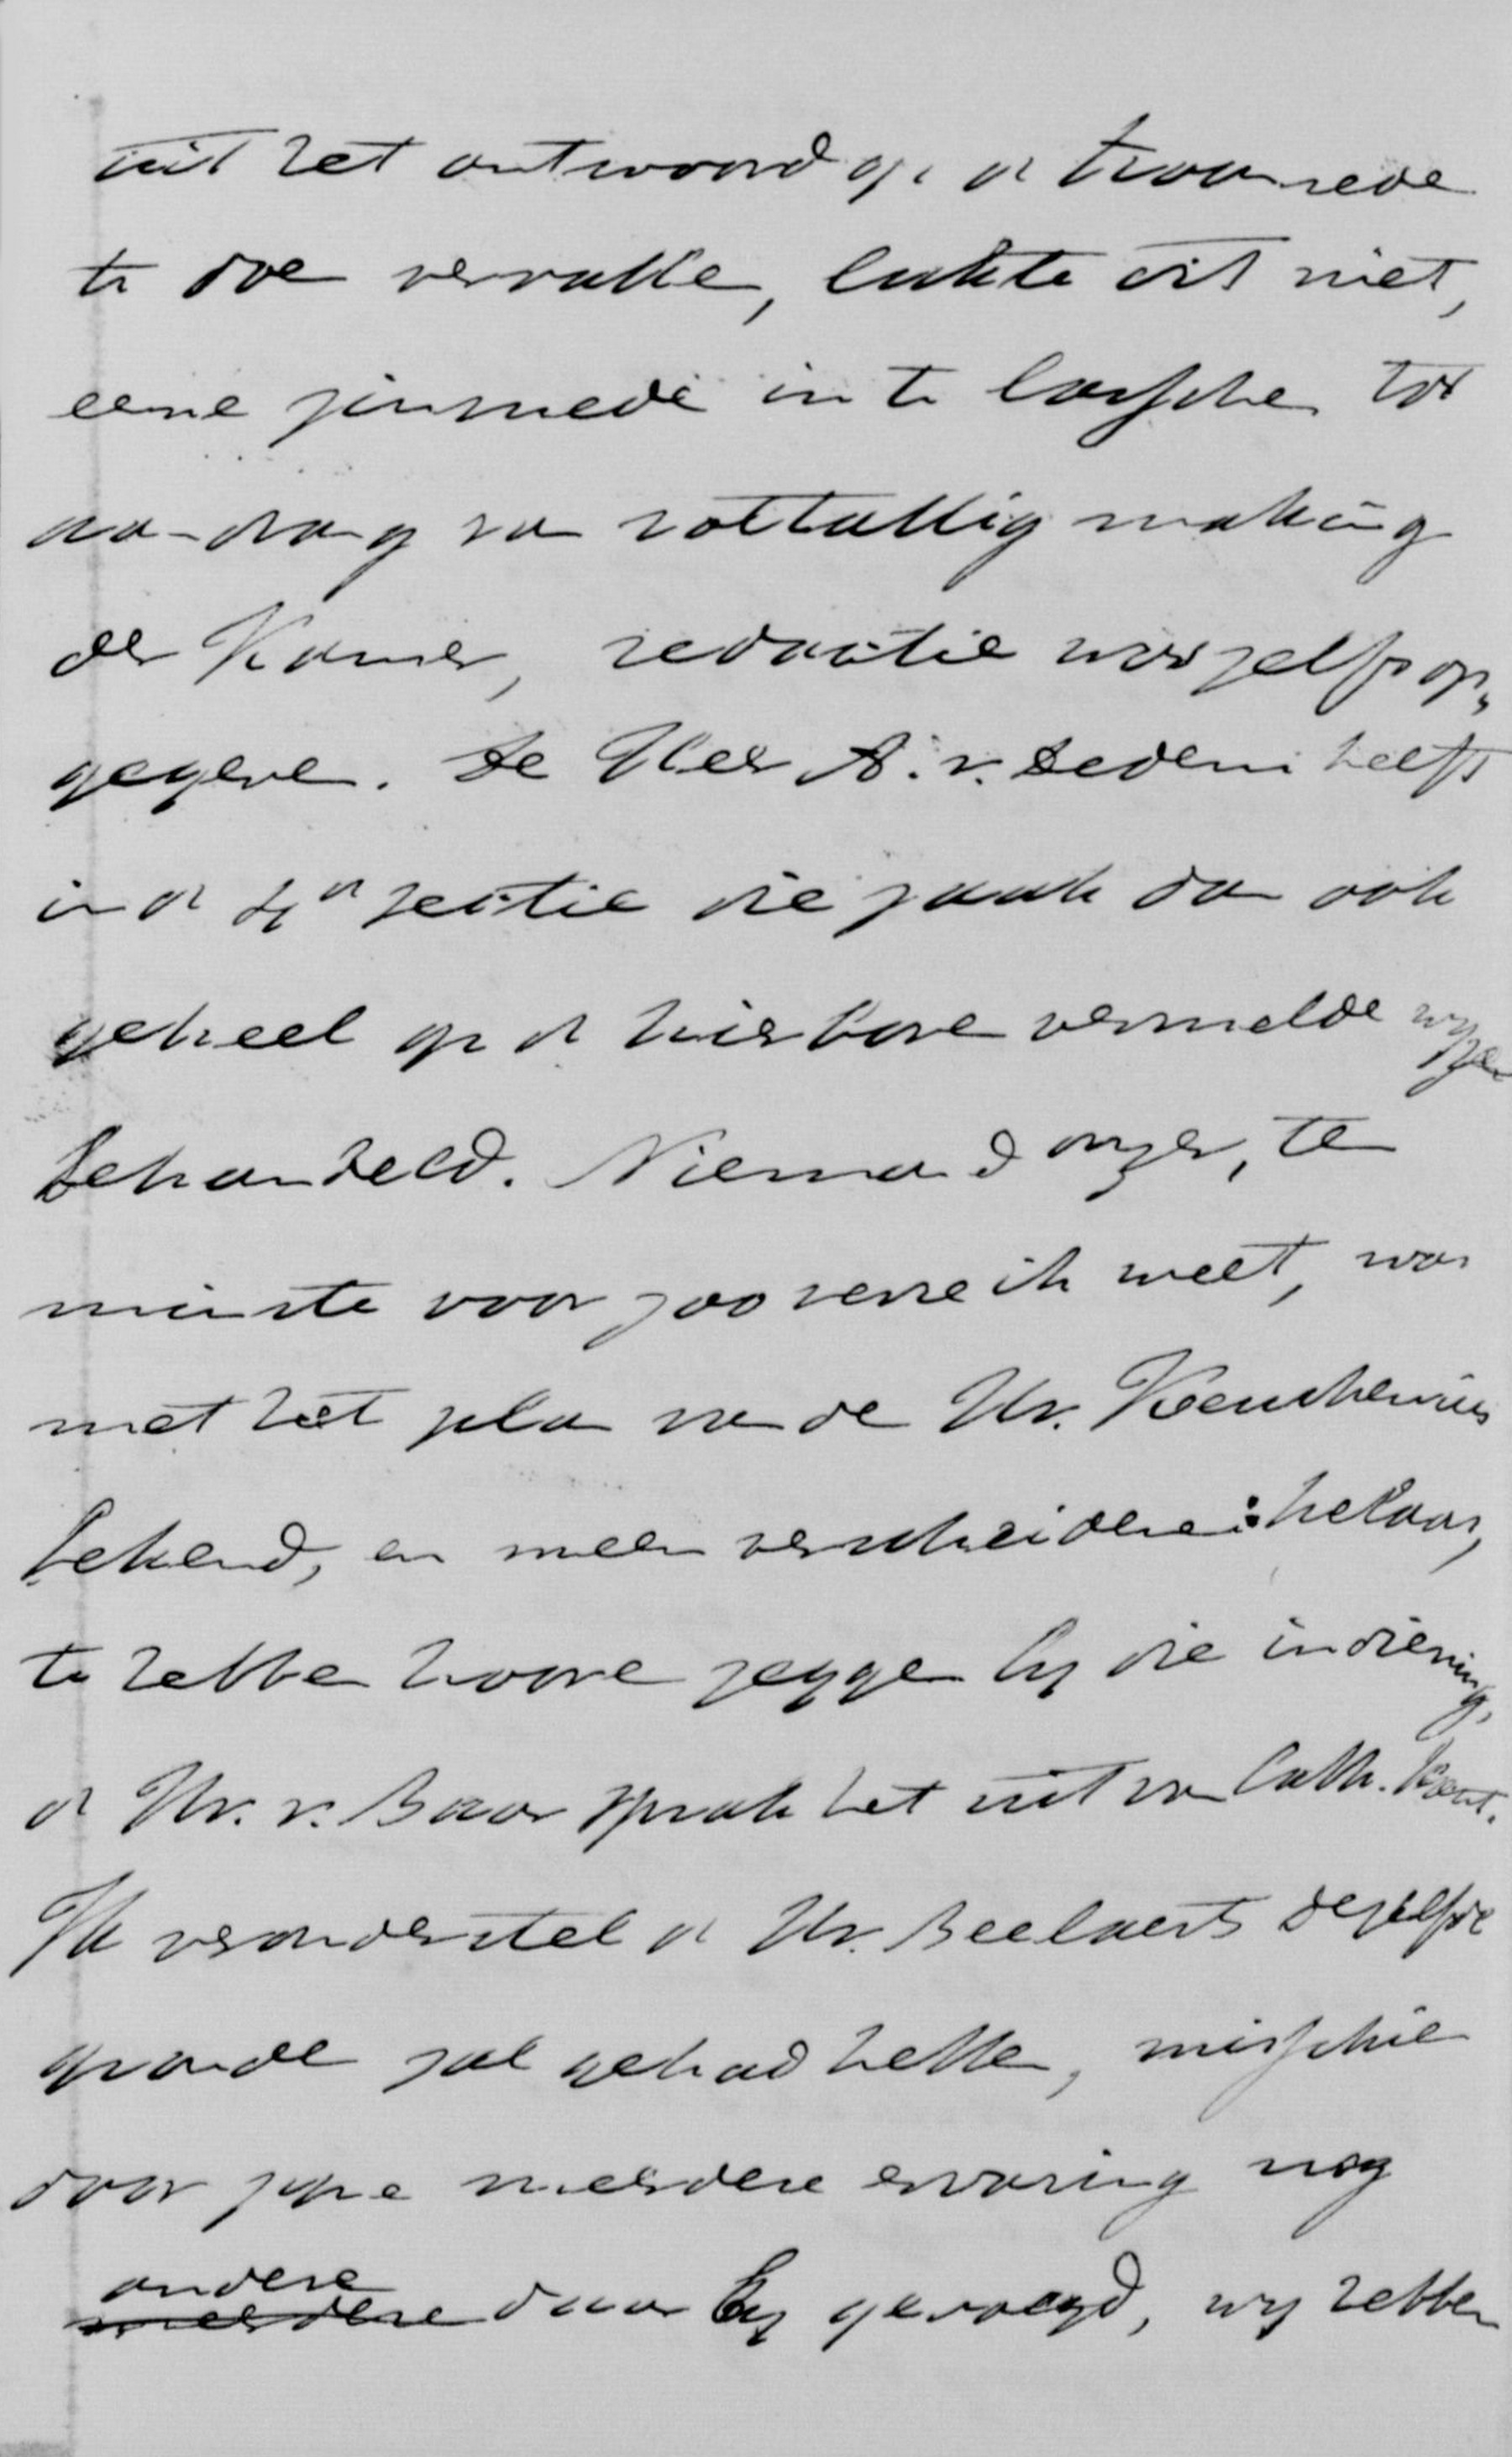 uit het antwoord op de troonrede
te doen vervallen, lukte dit niet,
eene zinsnede in te lasschen tot
aandrang van voltallig making
der Kamer, redactie was zelfs op„
gegeven. De Heer A. v. Dedem heeft
in de 4e sectie die zaak dan ook
geheel op de hierboven vermelde wijze
behandeld. Niemand onzer, ten
minste voor zooverre ik weet, was
met het plan van de Hr. Keuchenius
bekend, en meen verscheidene: helaas,
te hebben hooren zeggen bij die indiening,
de Hr. v. Baar sprak het uit van Cath. kant.
Ik veronderstel de Hr. Beelaerts dezelfde
gronden zal gehad hebben, misschien
door zijne meerdere ervaring nog
andere
meerdere daar bij gevoegd, wij hebben